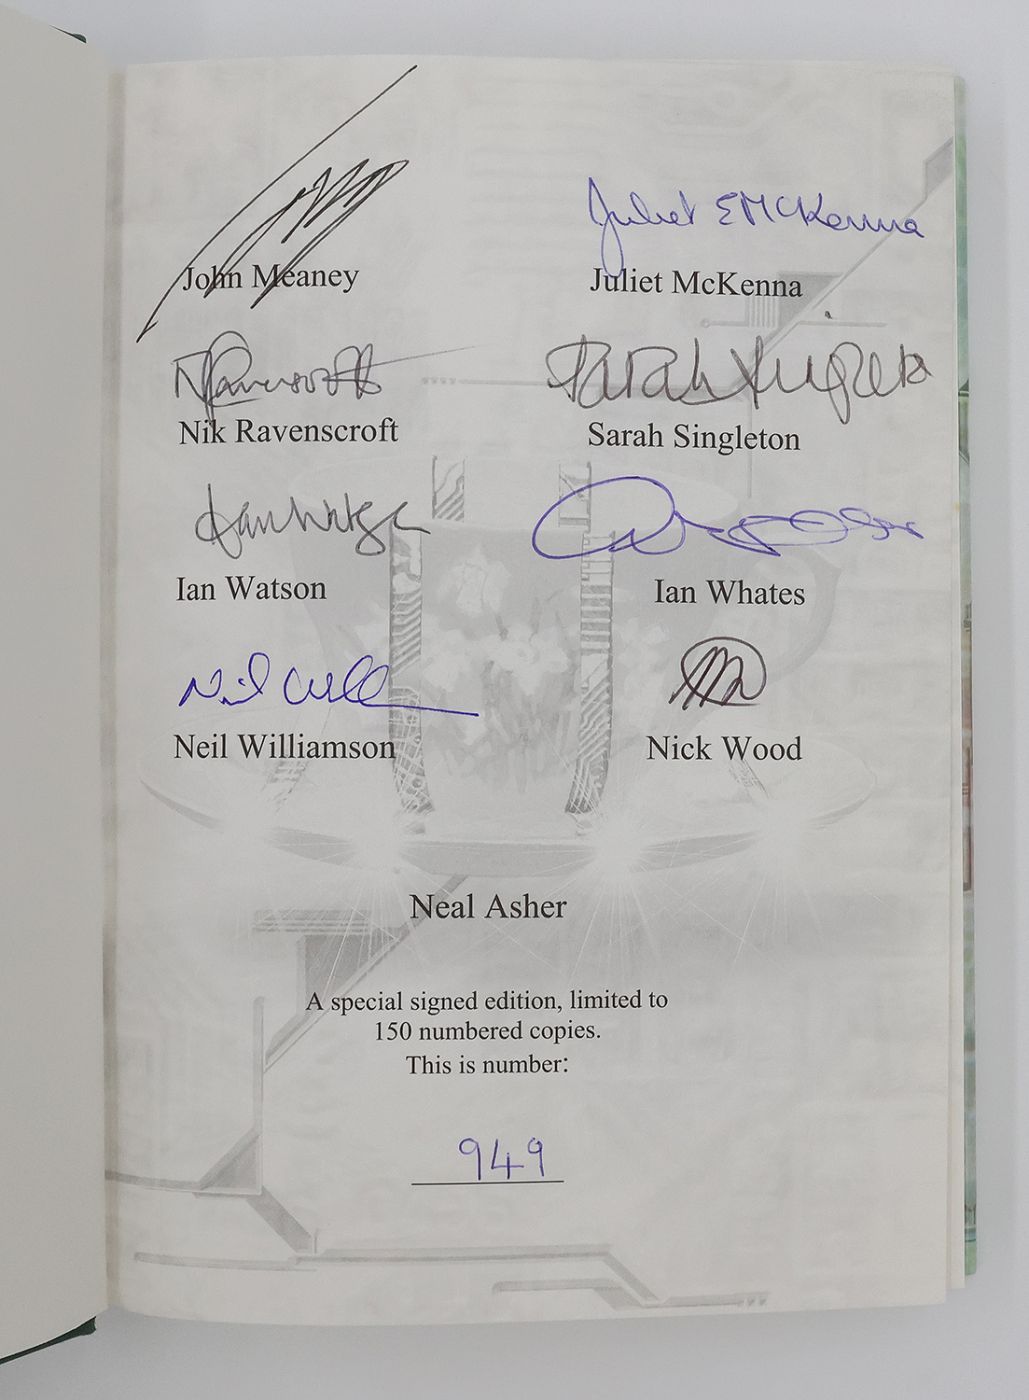 Juliet E McKenna
John Meaney
Juliet McKenna
NRavenscroft
Sarah Singleton
Nik Ravenscroft
Sarah Singleton
Ian Watson
Ian Watson
Ian Whates
Neil Will
Neil Williamson
Nick Wood
Neal Asher
A special signed edition, limited to
150 numbered copies.
This is number:
949